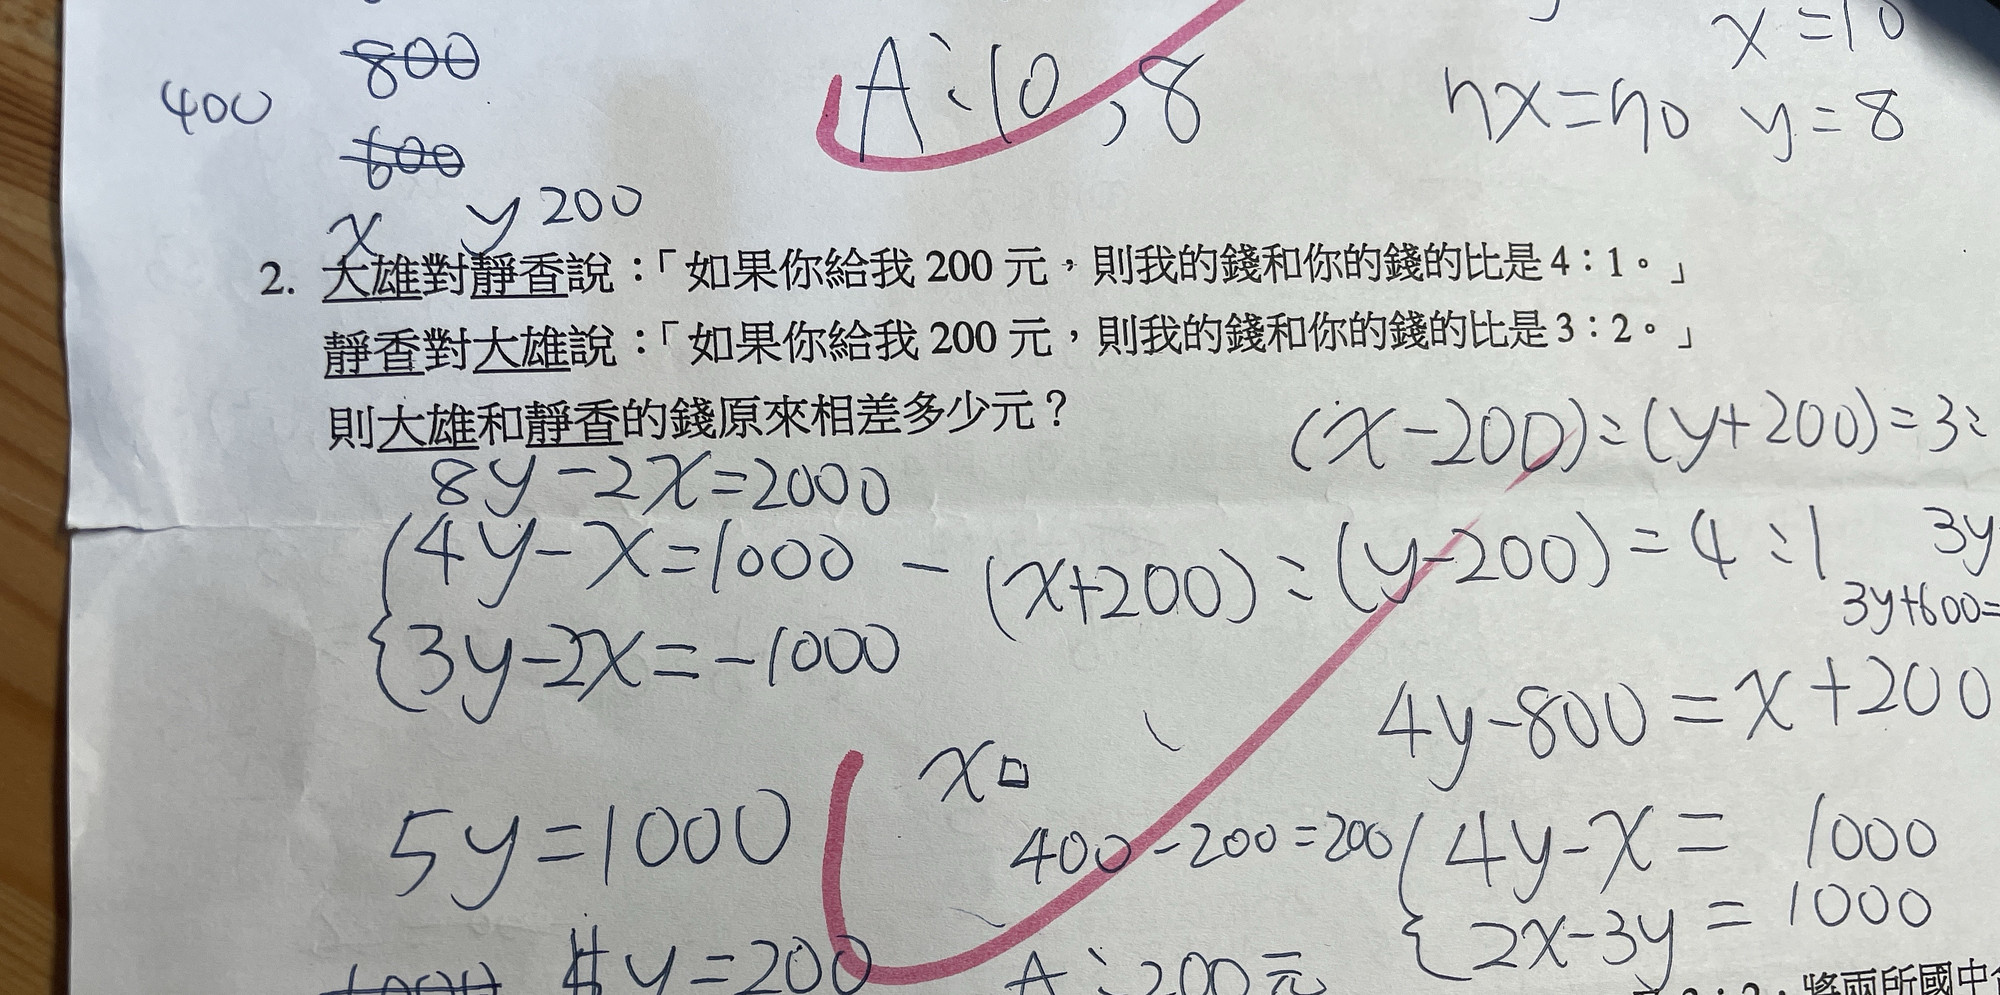 800
400
600
A:10,8
x=10
y=8
x y 200
2. 大雄對靜香說:「如果你給我 200 元,則我的錢和你的錢的比是 4:1。」
靜香對大雄說:「如果你給我 200 元,則我的錢和你的錢的比是 3:2。」
則大雄和靜香的錢原來相差多少元?
(x-200):(y+200)=3:
8y-2x=2000
4y-x=1000 - (x+200):(y-200)=4:1
3y
3y+600=
3y-2x=-1000
4y-800=x+200
x
5y=1000
400-200=200
4y-x=1000
2x-3y=1000
y=200
A:200元
將兩所國中